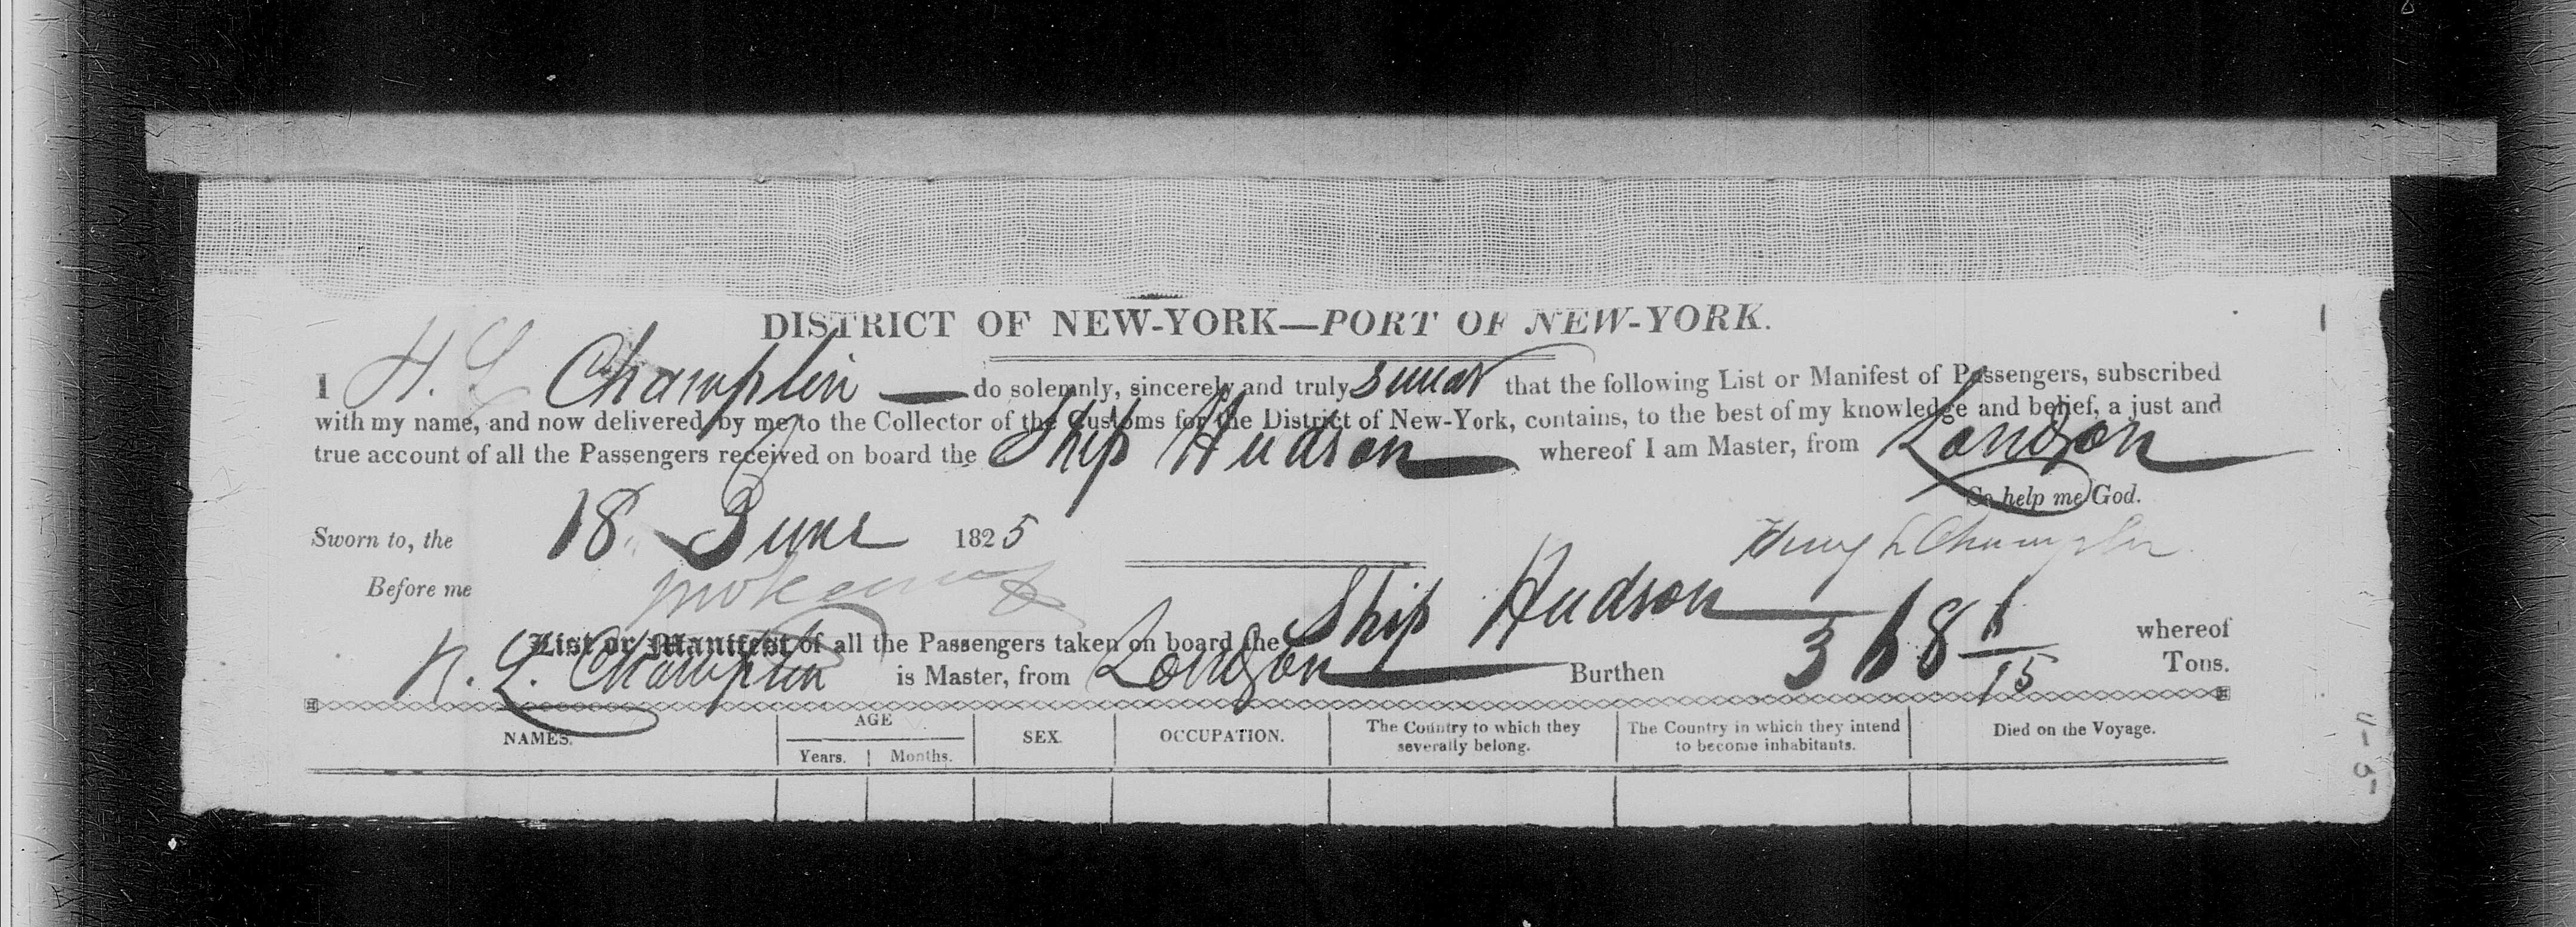 DISTRICT OF NEW-YORK—PORT OF NEW-YORK.
I H. L Champlin — do solemnly, sincerely and truly swear that the following List or Manifest of Passengers, subscribed
with my name, and now delivered by me to the Collector of the Customs for the District of New-York, contains, to the best of my knowledge and belief, a just and
true account of all the Passengers received on board the Ship Hudson whereof I am Master, from London
So help me God.
Sworn to, the 18 June 1825
Henry L Champlin
Before me
List or Manifest of all the Passengers taken on board the Ship Hudson whereof
H. L. Champlin is Master, from London Burthen 368 Tons.
NAMES. AGE SEX. OCCUPATION. The Country to which they severally belong. The Country in which they intend to become inhabitants. Died on the Voyage.
Years. Months.